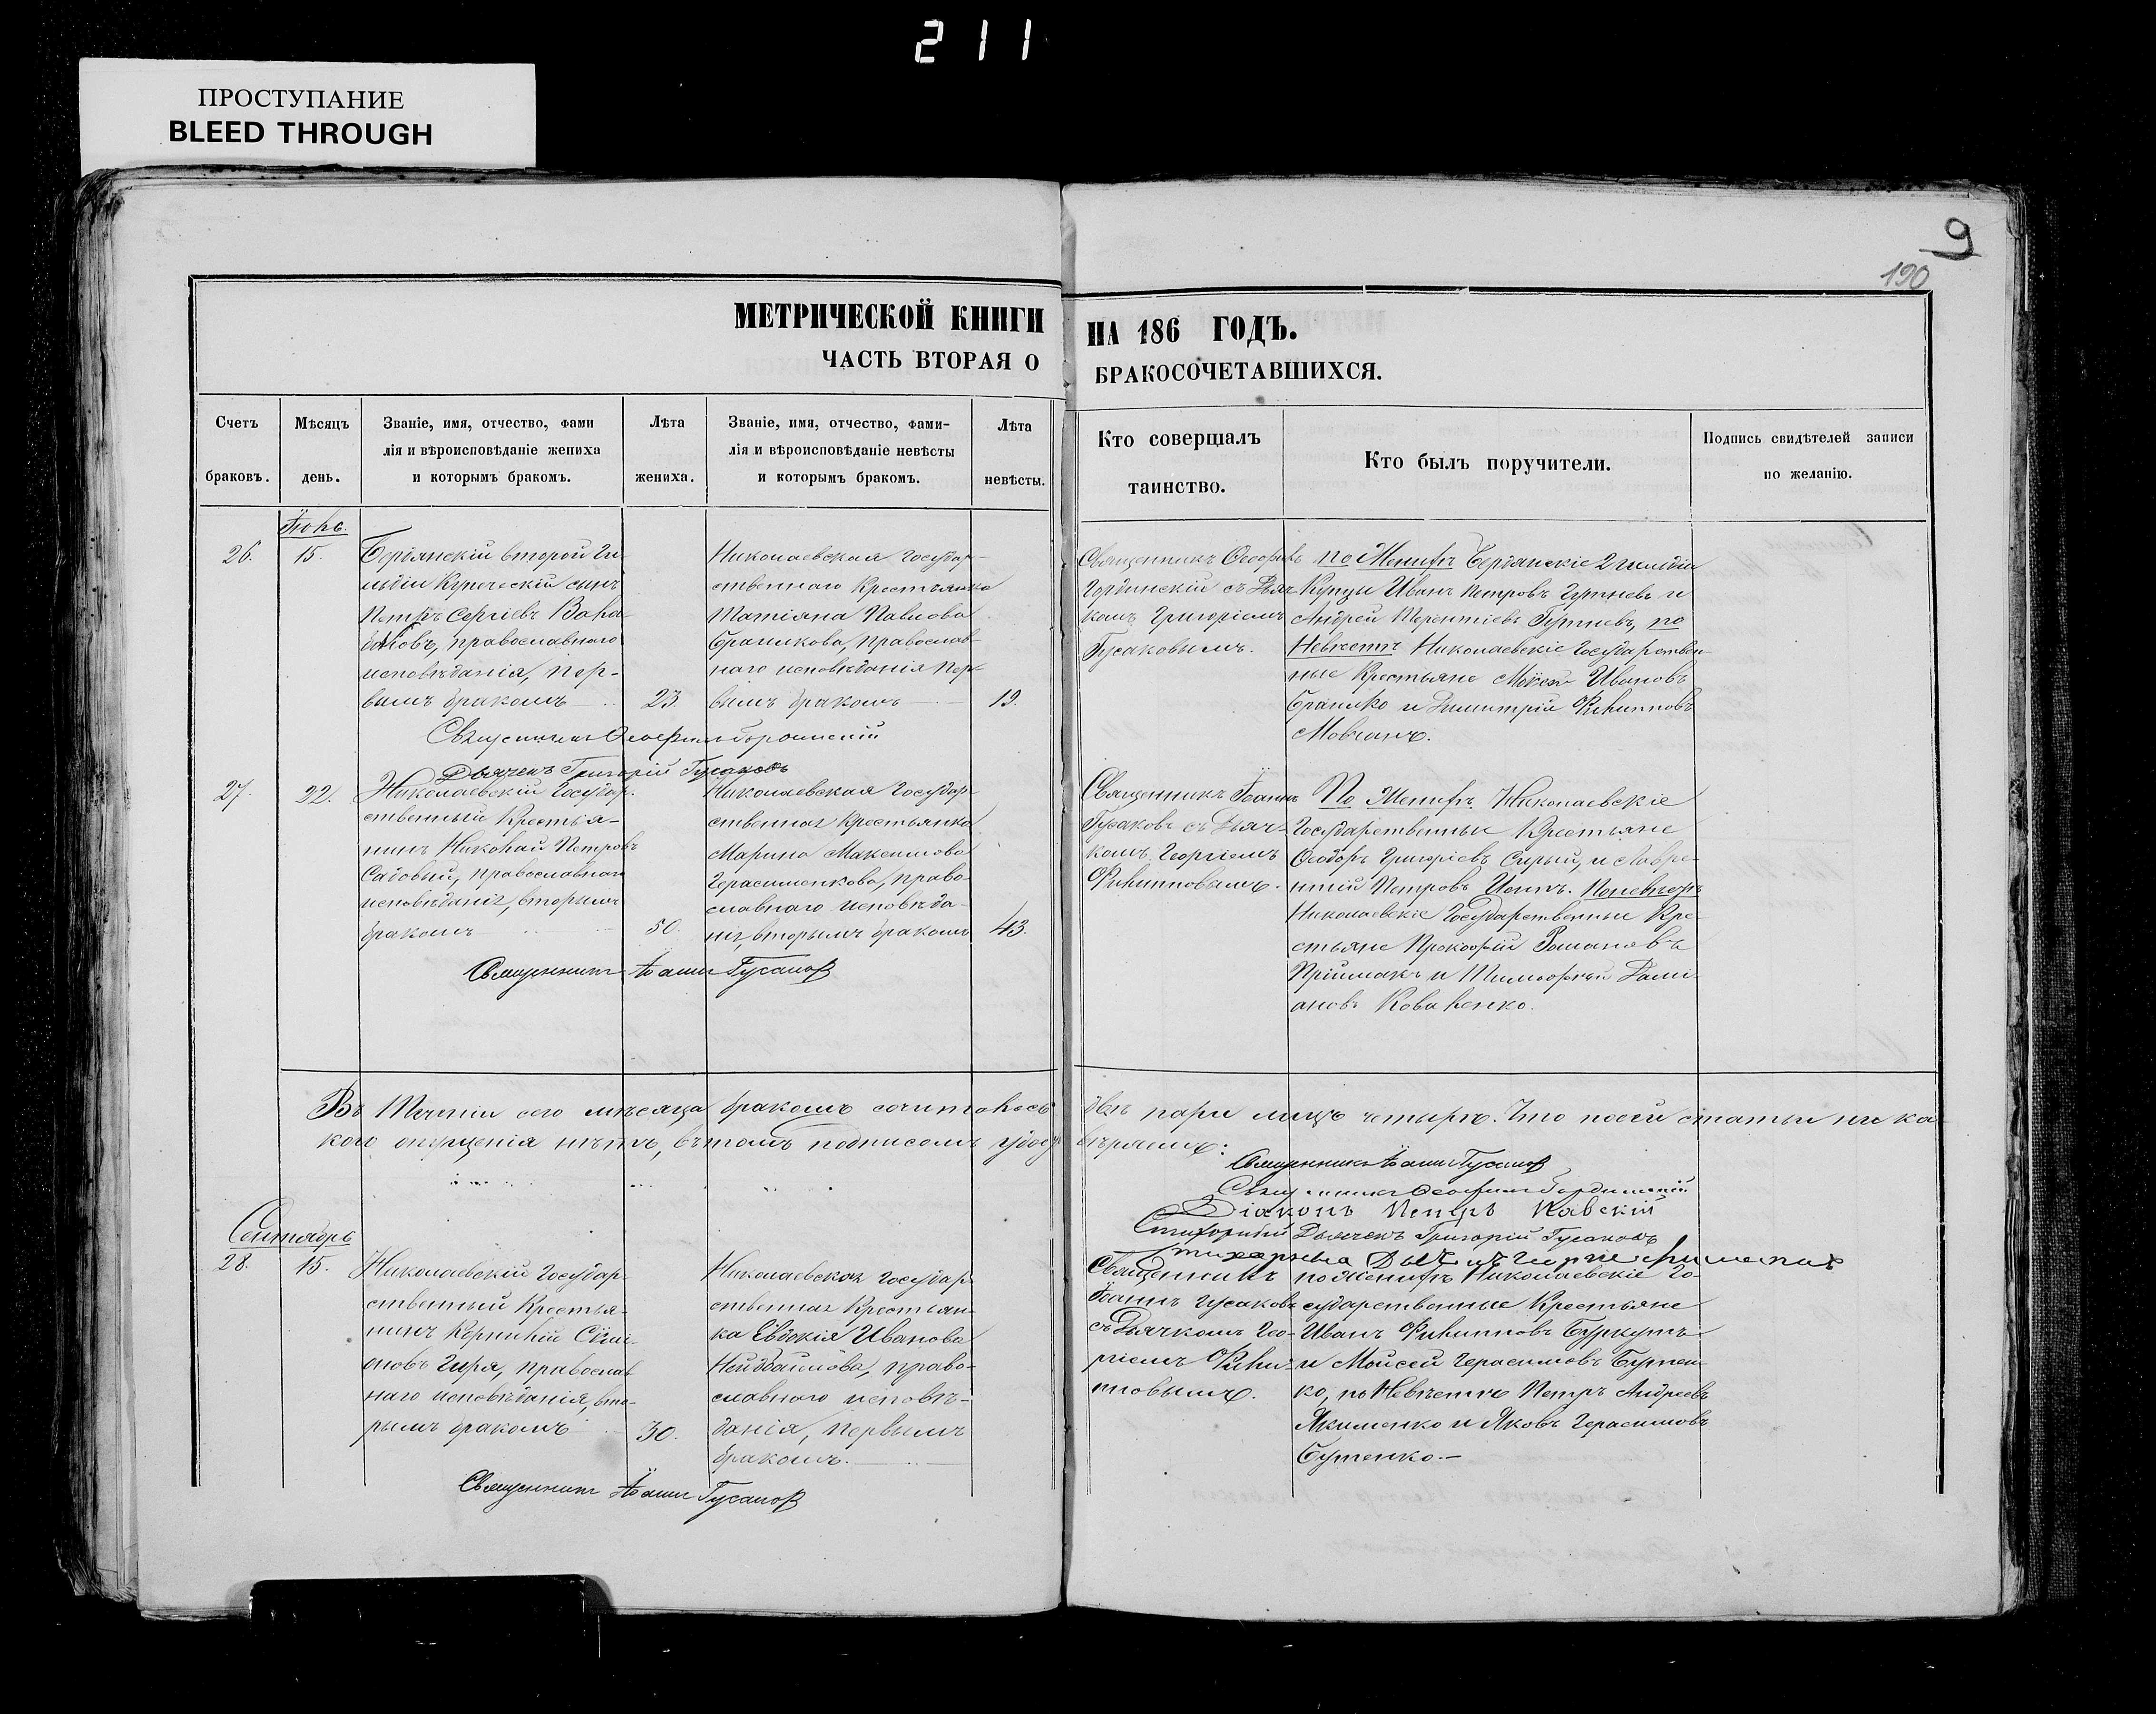 211
ПРОСТУПАНИЕ
BLEED THROUGH
9
190
МЕТРИЧЕСКОЙ КНИГИ НА 186 ГОДЪ.
ЧАСТЬ ВТОРАЯ О БРАКОСОЧЕТАВШИХСЯ.
Счетъ браковъ.
Мѣсяцъ день.
Званіе, имя, отчество, фами
лія и вѣроисповѣданіе жениха
и которымъ бракомъ.
Лѣта
жениха.
Званіе, имя, отчество, фами-
лія и вѣроисповѣданіе невѣсты
и которымъ бракомъ.
Лѣта
невѣсты.
Кто совершалъ
таинство.
Кто былъ поручители.
Подпись свидѣтелей записи
по желанію.
26.
15.
Бердянскій второй Ги
льдіи Купеческій сынъ
Петръ Сергіевъ
православнаго
исповѣданія, пер-
вымъ бракомъ
23.
Николаевская Государ-
ственнаго Крестьянка
Татіяна Павлова
Православ-
наго исповѣданія пер-
вымъ бракомъ
19.
Священникъ
съ Дьяч-
комъ Григоріемъ
Гусаковымъ.
по Женихѣ Бердянскіе 2 гильдіи
Купцы Иванъ Петровъ и
Андрей Терентіевъ по
Невѣстѣ Николаевскіе Государствен-
ные Крестьяне Ивановъ
и Димитрій Филипповъ
Мовчанъ.
Дьячекъ Григорій Гусаковъ
27.
22.
Николаевскій Государ-
ственный Крестья-
нинъ Николай Петровъ
Садовый, православнаго
исповѣданія, вторымъ
бракомъ
50.
Николаевская Государ
ственная Крестьянка
Марина Максимова
Герасименкова, право-
славнаго исповѣда-
нія, вторымъ бракомъ
43.
Священникъ Іоаннъ
Гусаковъ съ Дьяч-
комъ Георгіемъ
Филипповымъ.
По Женихѣ Николаевскіе
Государственные Крестьяне
Ѳеодоръ Григоріевъ Сирый, и Лавре-
нтій Петровъ По невѣстѣ
Николаевскіе Государственные Кре-
стьяне Прокофій Романовъ
Пріймакъ и Тимофей Дамі-
ановъ Коваленко.
Священникъ Іоаннъ Гусаковъ
Въ теченіи сего мѣсяца бракомъ сочиталось двѣ пары лицъ четыре. Что по сей статьи ни ка-
кого опущенія нѣтъ, въ томъ подписомъ удостовѣряемъ:
Священникъ Іоаннъ Гусаковъ
Діаконъ Петръ
Стихарный Дьячекъ Григорій Гусаковъ
Сентябрь
28.
15.
Николаевскій Государ-
ственный Крестья-
нинъ Корнилій Сим-
оновъ Гиря, православ
наго исповѣданія, вто-
рымъ бракомъ
30.
Николаевская Государ-
ственная Крестьян-
ка Евдокія Иванова
право-
славнаго исповѣ-
данія, первымъ
бракомъ.
Священникъ
Іоаннъ Гусаковъ
съ Дьячкомъ Гео-
ргіемъ Фили-
пповымъ.
по Женихѣ Николаевскіе Го-
сударственные Крестьяне
Иванъ Филипповъ
и Моисей Герасимовъ Бутен-
ко, по Невѣстѣ Петръ Андреевъ
Якименко и Яковъ Герасимовъ
Бутенко.
Священникъ Іоаннъ Гусаковъ